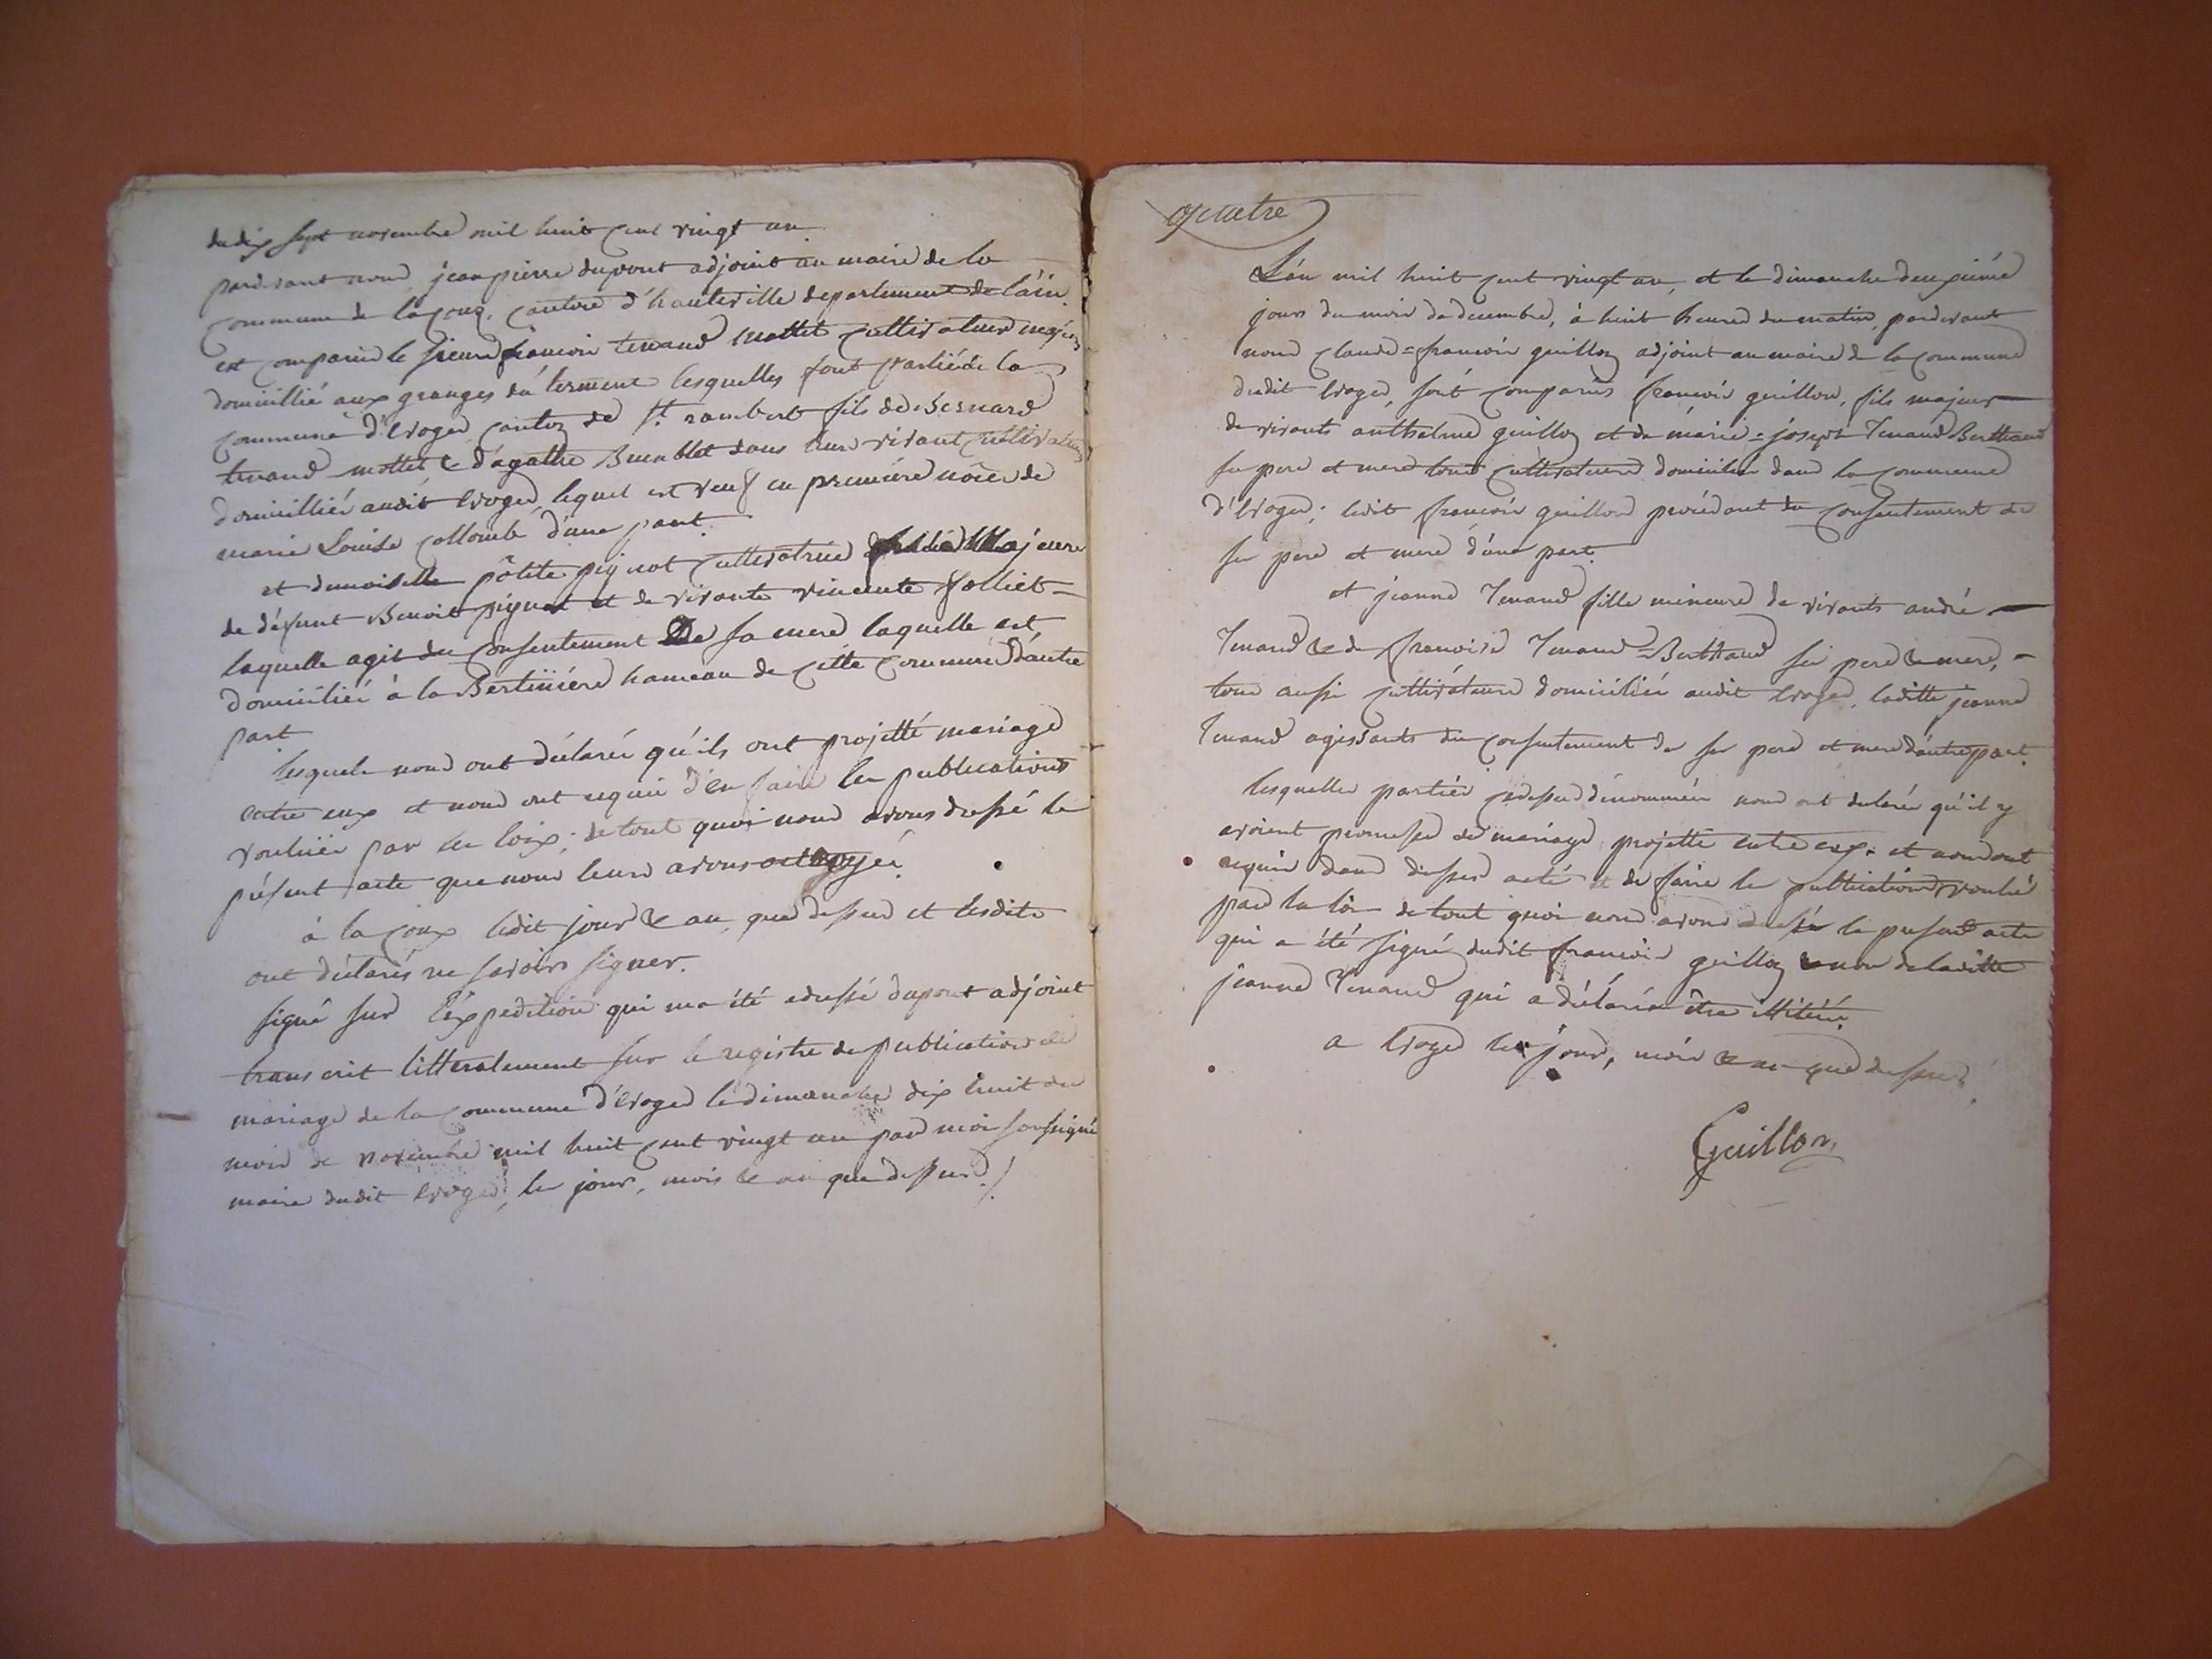 du dix sept novembre mil huit cent vingt un
pardevant nous jean pierre dupont adjoint au maire de la
commune de lacoux, canton d'hauteville departement de l'ain
est comparu le sieur françois tenand mottet cultivateur majeur
domicilié aux granges du terment lesquelles font partié de la
commune d'Evoges canton de St. rambert fils de Bernard
tenand mottet & d'agathe Brunblet tous deux vivant cultivateurs
domicilliés audit Evoges lequel est veuf en premiére nôces de
marie Louise collombe d'une part.
et demoiselle pôlite pignot cultivatrice fille Majeure
de défunt Benoit pignot et de vivante vincente folliet =
laquelle agit du consentement De sa mere laquelle est
domiciliée à la Bertiniére hameau de cette commune d'autre
part
lesquels nous ont déclarés qu'ils ont projetté mariage
entre eux et nous ont requis d'en faire les publications
voulües par les loix; de tout quoi nous avons dressé le
présent acte que nous leurs avons octroyée.
à la coux ledit jour & an que dessus et lesdits
ont déclarés ne savoirs signer.
signé sur l'éxpedition qui ma été adressé dupont adjoint
transcrit litteralement sur le registre de publications de
mariage de la commune d'Evoges le dimanche dix huit du
mois de novembre mil huit cent vingt un par moi soussigné
maire dudit Evoges, les jour, mois & an que dessus./.
quatre
L'an mil huit cent vingt un, et le dimanche deuxiéme
jours du mois de decembre, à huit heures du matin, pardevant
nous Claude = françois guillon adjoint au maire de la commune
dudit Evoges, sont comparus françois guillon, fils majeur
de vivants anthelme guillon et de marie = joseph Tenand Berthand
ses pere et mere tous cultivateurs domiciliés dans la commune
d'Evoges; ledit françois guillon procédant du consentement de
ses pere et mere d'une part.
et jeanne Tenand fille mineure de vivants andré
Tenand & de françoise Tenand = Berthand ses pere & mere, =
tous aussi cultivateurs domiciliés audit Evoges, laditte jeanne
Tenand agissants du consentement de ses pere et mere d'autre part.
lesquelles partiés cidessus dénommées nous ont declarés qu'il y
avoient promesse de mariage projetté entre eux. et nous ont
requis d'en dresser acté et de faire les publications voulüe
par la loi de tout quoi nous avons dressé le present acte
qui a été signé dudit françois guillon & non de laditte
jeanne Tenand qui a déclarée être illitérée.
a Evoges les jour, mois & an que dessus.
Guillon